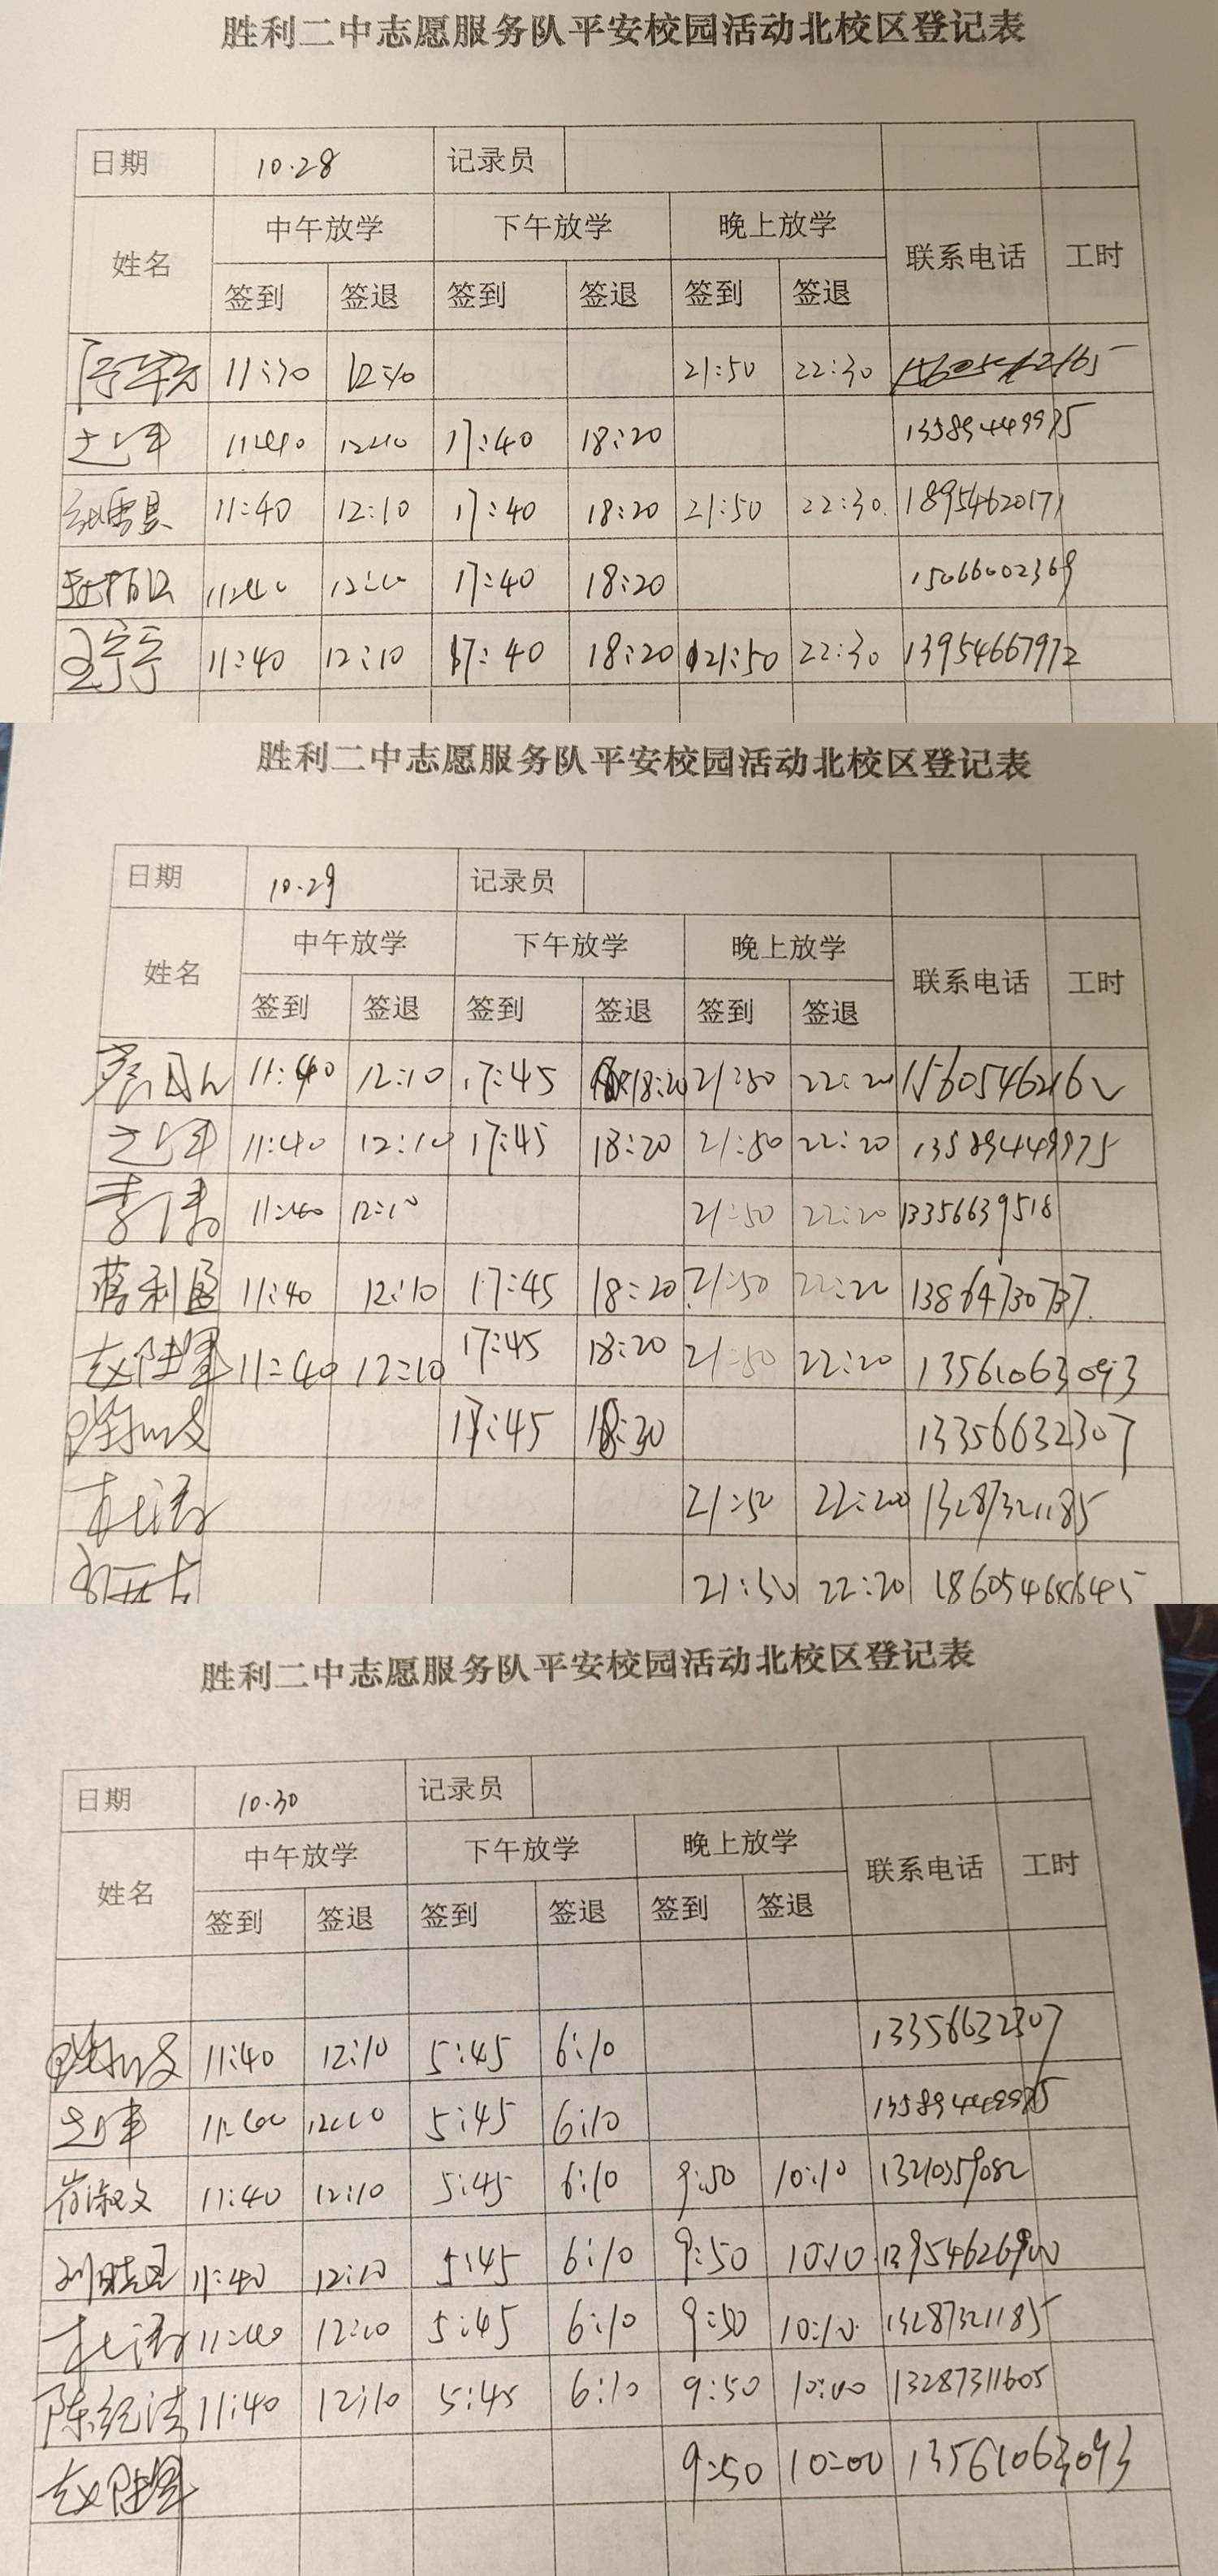 胜利二中志愿服务队平安校园活动北校区登记表
日期 10.28 记录员
姓名 中午放学 下午放学 晚上放学 联系电话 工时
签到 签退 签到 签退 签到 签退
11:30 12:10 21:50 22:30
11:40 12:10 17:40 18:20 13589449975
11:40 12:10 17:40 18:20 21:50 22:30 18954620171
11:40 12:10 17:40 18:20 15066002369
王宁宁 11:40 12:10 17:40 18:20 21:50 22:30 13954667972
胜利二中志愿服务队平安校园活动北校区登记表
日期 10.29 记录员
姓名 中午放学 下午放学 晚上放学 联系电话 工时
签到 签退 签到 签退 签到 签退
11:40 12:10 17:45 18:20 21:50 22:20
11:40 12:10 17:45 18:20 21:50 22:20 13589449975
李 11:40 12:10 21:50 22:20 13356639518
蒋利 11:40 12:10 17:45 18:20 21:50 22:20
赵陆军 11:40 12:10 17:45 18:20 21:50 22:20 13561063093
17:45 18:30 13356632307
21:50 22:20 13287321185
21:50 22:20 18605464645
胜利二中志愿服务队平安校园活动北校区登记表
日期 10.30 记录员
姓名 中午放学 下午放学 晚上放学 联系电话 工时
签到 签退 签到 签退 签到 签退
11:40 12:10 5:45 6:10 13356632307
11:40 12:10 5:45 6:10 13589449975
崔淑文 11:40 12:10 5:45 6:10 9:50 10:10
刘晓 11:40 12:10 5:45 6:10 9:50 10:10 13954626900
11:40 12:10 5:45 6:10 9:50 10:10 13287321185
陈纪法 11:40 12:10 5:45 6:10 9:50 10:00 13287311605
赵陆军 9:50 10:00 13561063093